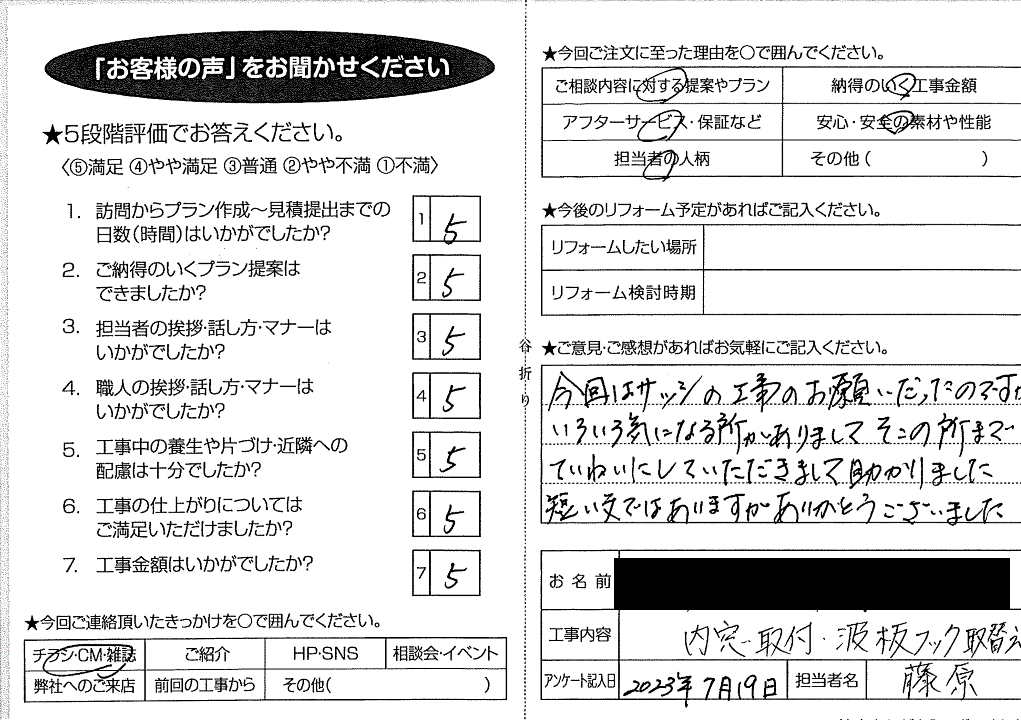 「お客様の声」をお聞かせください
★5段階評価でお答えください。
〈⑤満足 ④やや満足 ③普通 ②やや不満 ①不満〉
1. 訪問からプラン作成〜見積提出までの
日数(時間)はいかがでしたか?
1 5
2. ご納得のいくプラン提案は
できましたか?
2 5
3. 担当者の挨拶・話し方・マナーは
いかがでしたか?
3 5
4. 職人の挨拶・話し方・マナーは
いかがでしたか?
4 5
5. 工事中の養生や片づけ・近隣への
配慮は十分でしたか?
5 5
6. 工事の仕上がりについては
ご満足いただけましたか?
6 5
7. 工事金額はいかがでしたか?
7 5
★今回ご連絡頂いたきっかけを○で囲んでください。
チラシ・CM・雑誌 ご紹介 HP・SNS 相談会・イベント
弊社へのご来店 前回の工事から その他( )
谷折り
★今回ご注文に至った理由を○で囲んでください。
ご相談内容に対する提案やプラン 納得のいく工事金額
アフターサービス・保証など 安心・安全の素材や性能
担当者の人柄 その他( )
★今後のリフォーム予定があればご記入ください。
リフォームしたい場所
リフォーム検討時期
★ご意見・ご感想があればお気軽にご記入ください。
今回はサッシの工事のお願いだったのですが
いろいろ気になる所がありまして そこの所まで
ていねいにしていただきまして助かりました
短い文ではありますがありがとうございました
お名前
工事内容 内窓取付・波板フック取替え
アンケート記入日 2023年7月19日 担当者名 藤原